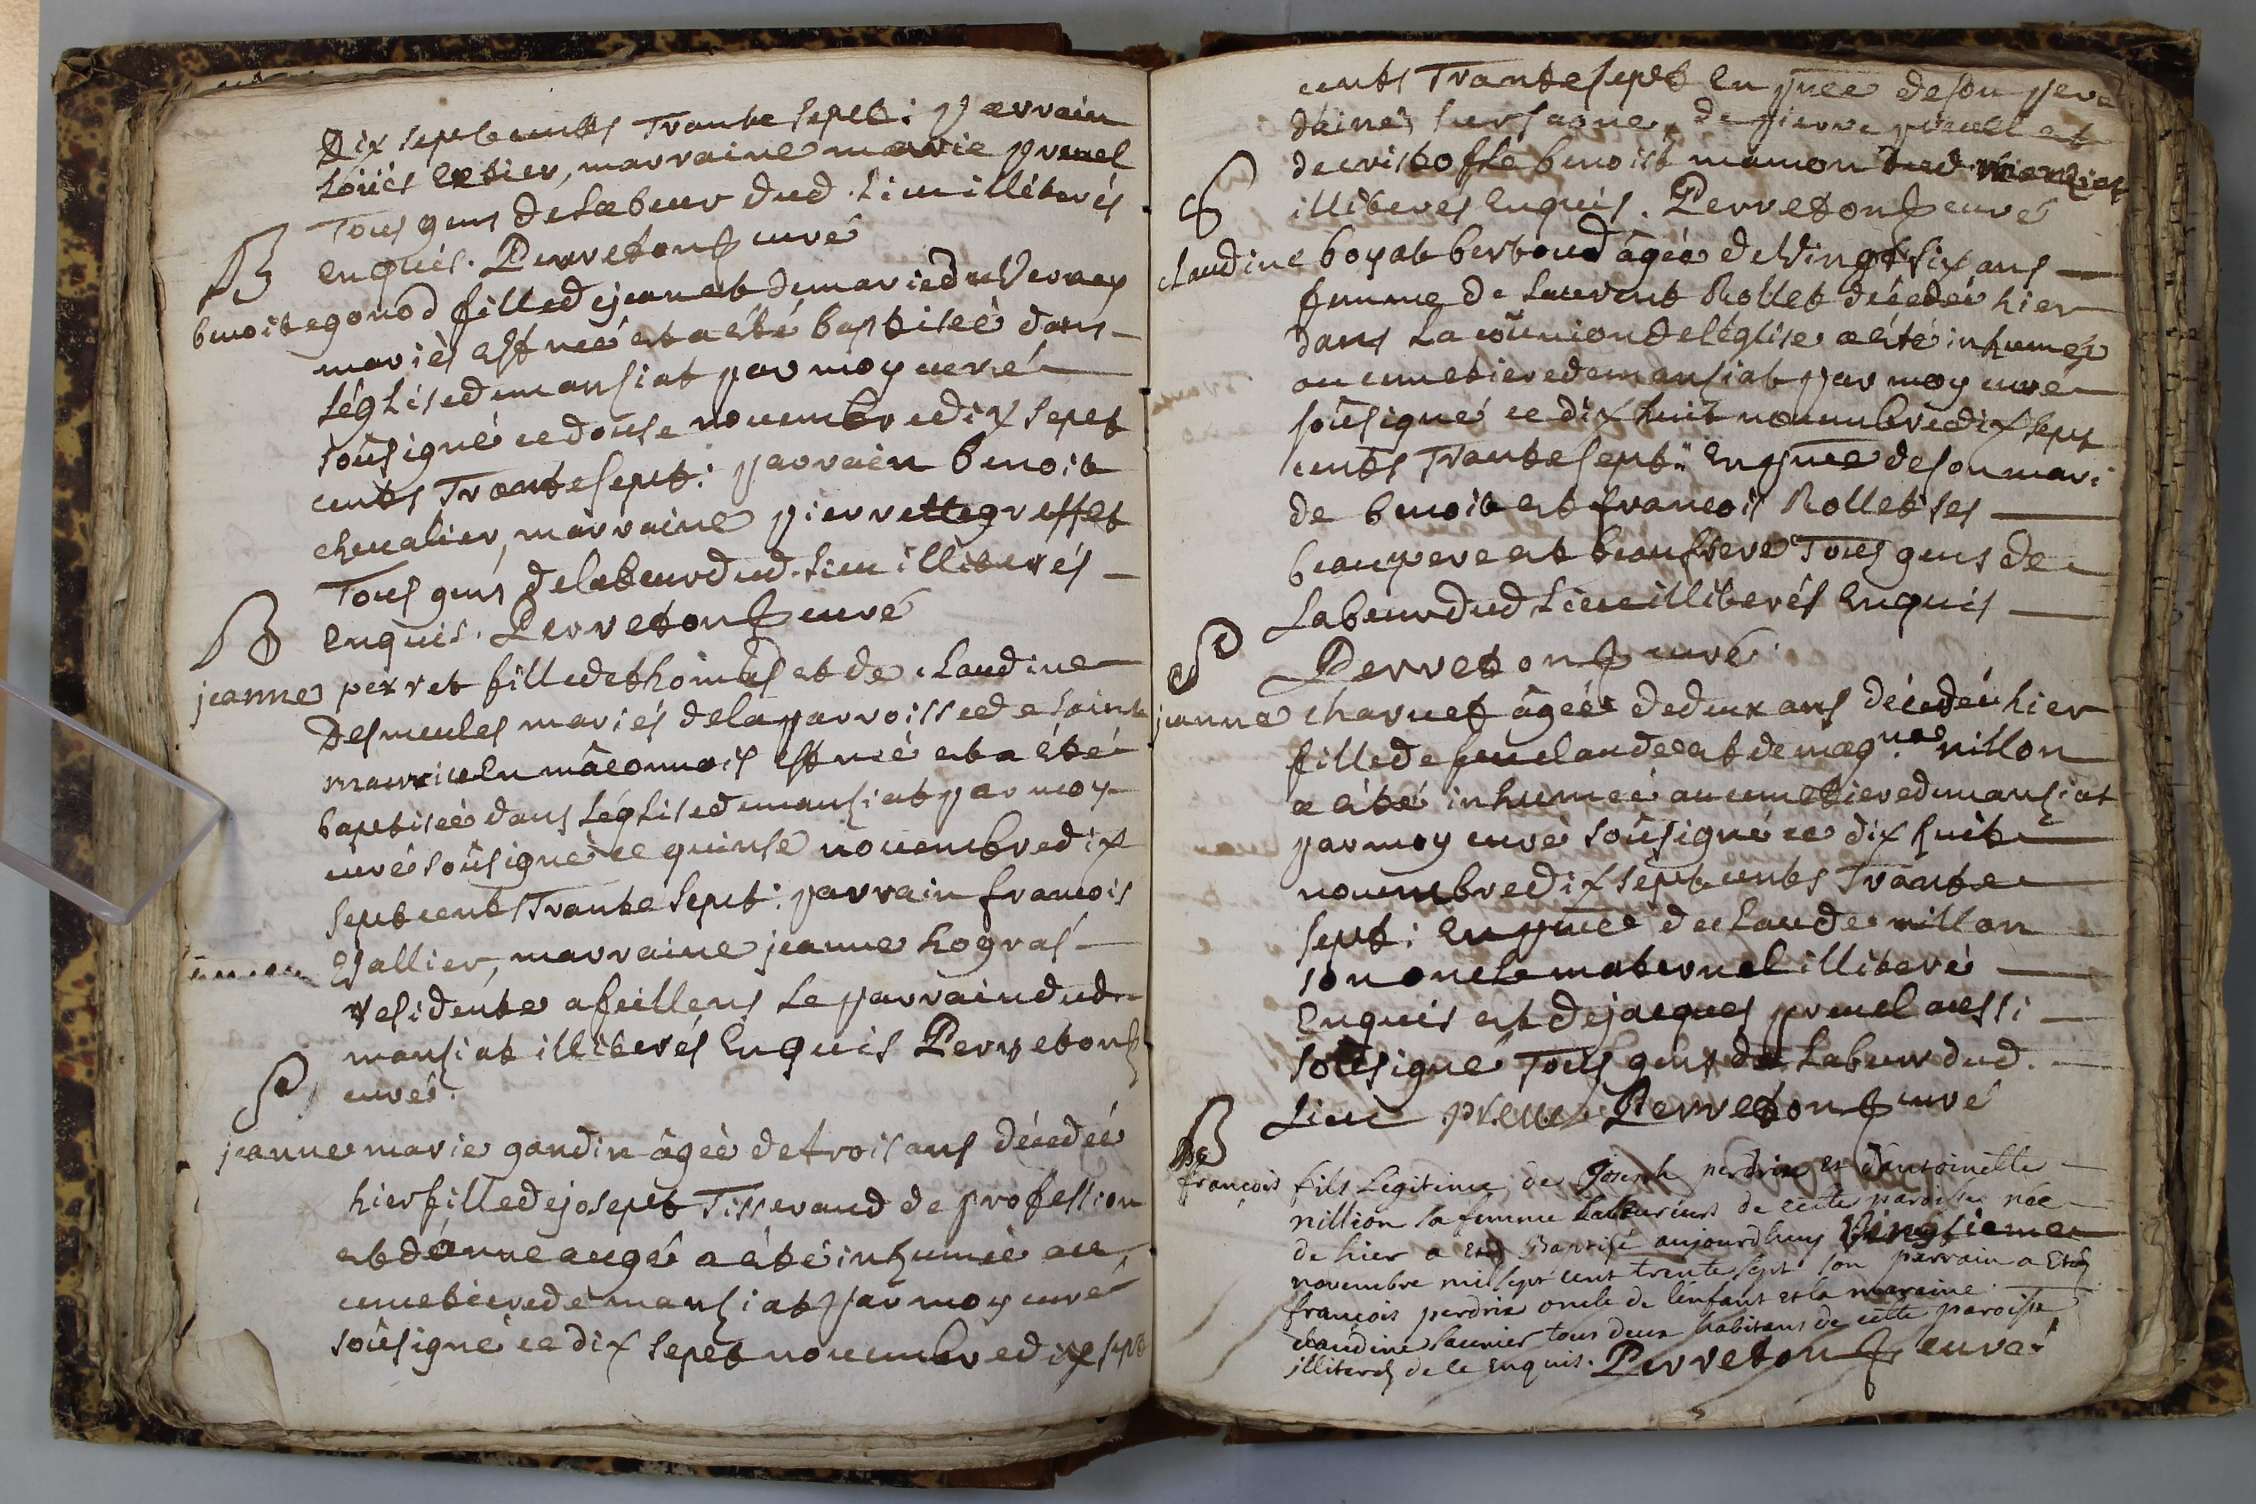 Dix sept cents Trante sept : parrain
Loüis Extier, marraine marie pruel
Tous gens de Labeur dud. Lieu illiterés
Enquis. Perreton curé
B
benoite gonod fille de jean et de marie du Verney
mariés Est neé et a été baptiseé dans
Léglise de mansiat par moy curé
soûsigné ce douse nouembre dix sept
cents Trante sept : parrain benoit
cheualier, marraine pierrette greffet
Tous gens de labeur dud. Lieu illiterés
Enquis. Perreton curé
B
jeanne perret fille de thomas et de Claudine
Desmeules mariés de la parroisse de saint
maurice En mâconnois Est neé et a été
baptiseé dans Léglise de mansiat par moy
curé soûsigné ce quinse nouembre dix
sept cents Trante sept : parrain francois
Vallier, marraine jeanne hogras
residente a feillens Le parrain dud
mansiat illiterés Enquis Perreton
curé.
S
jeanne marie gandin âgeé de trois ans décedeé
hier fille de josept Tisserand de profession
et d'anne augé a été inhumeé au
cimetiere de mansiat par moy curé
soûsigné ce dix sept nouembre dix sept
cents Trante sept En pnce de son pere
de pierre pruel et
de cristofle benoist manion dud mansiat
illiteres Enquis. Perreton curé
S
Claudine boyat bertoud âgeé de Vingt six ans
femme de Laurent Rollet décedeé hier
dans La coûnion de léglise a été inhumeé
au cimetiere de mansiat par moy curé
soûsigné ce dix huit nouembre dix sept
cents Trante sept : En pnce de son mari
de benoit et francois Rollet ses
beaupere et beaufrere Tous gens de
Labeur dud Lieu illiterés Enquis
Perreton curé
S
jeanne charuet âgeé de deux ans décedeé hier
fille de feu claude et de magne nillon
a été inhumeé au cimetiere de mansiat
par moy curé soûsigné ce dix huit
nouembre dix sept cents Trante
sept : En pnce de Claude nillon
son oncle maternel illiteré
Enquis et de jacques pruel aussi
soûsigné Tous gens de Labeur dud.
Lieu pruel Perreton curé
B
francois fils Legitime de Joseph perdrix et dantoinette
nillion sa femme Laboureurs de cette paroisse née
de hier a Eté Baptisé aujourdhuy Vingtieme
novembre mil sept cent trente sept son parrain a Eté
françois perdrix oncle de lenfant et la maraine
claudine saunier tous deux habitans de cette paroisse
illiterés de ce Enquis. Perreton curé